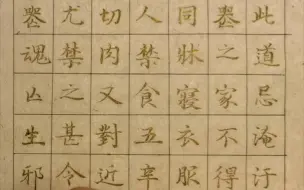 此道忌淹汙
喪之家不得
同牀寢衣服
人禁食五辛
切肉又對近
尤禁之甚令
喪魂凶生邪